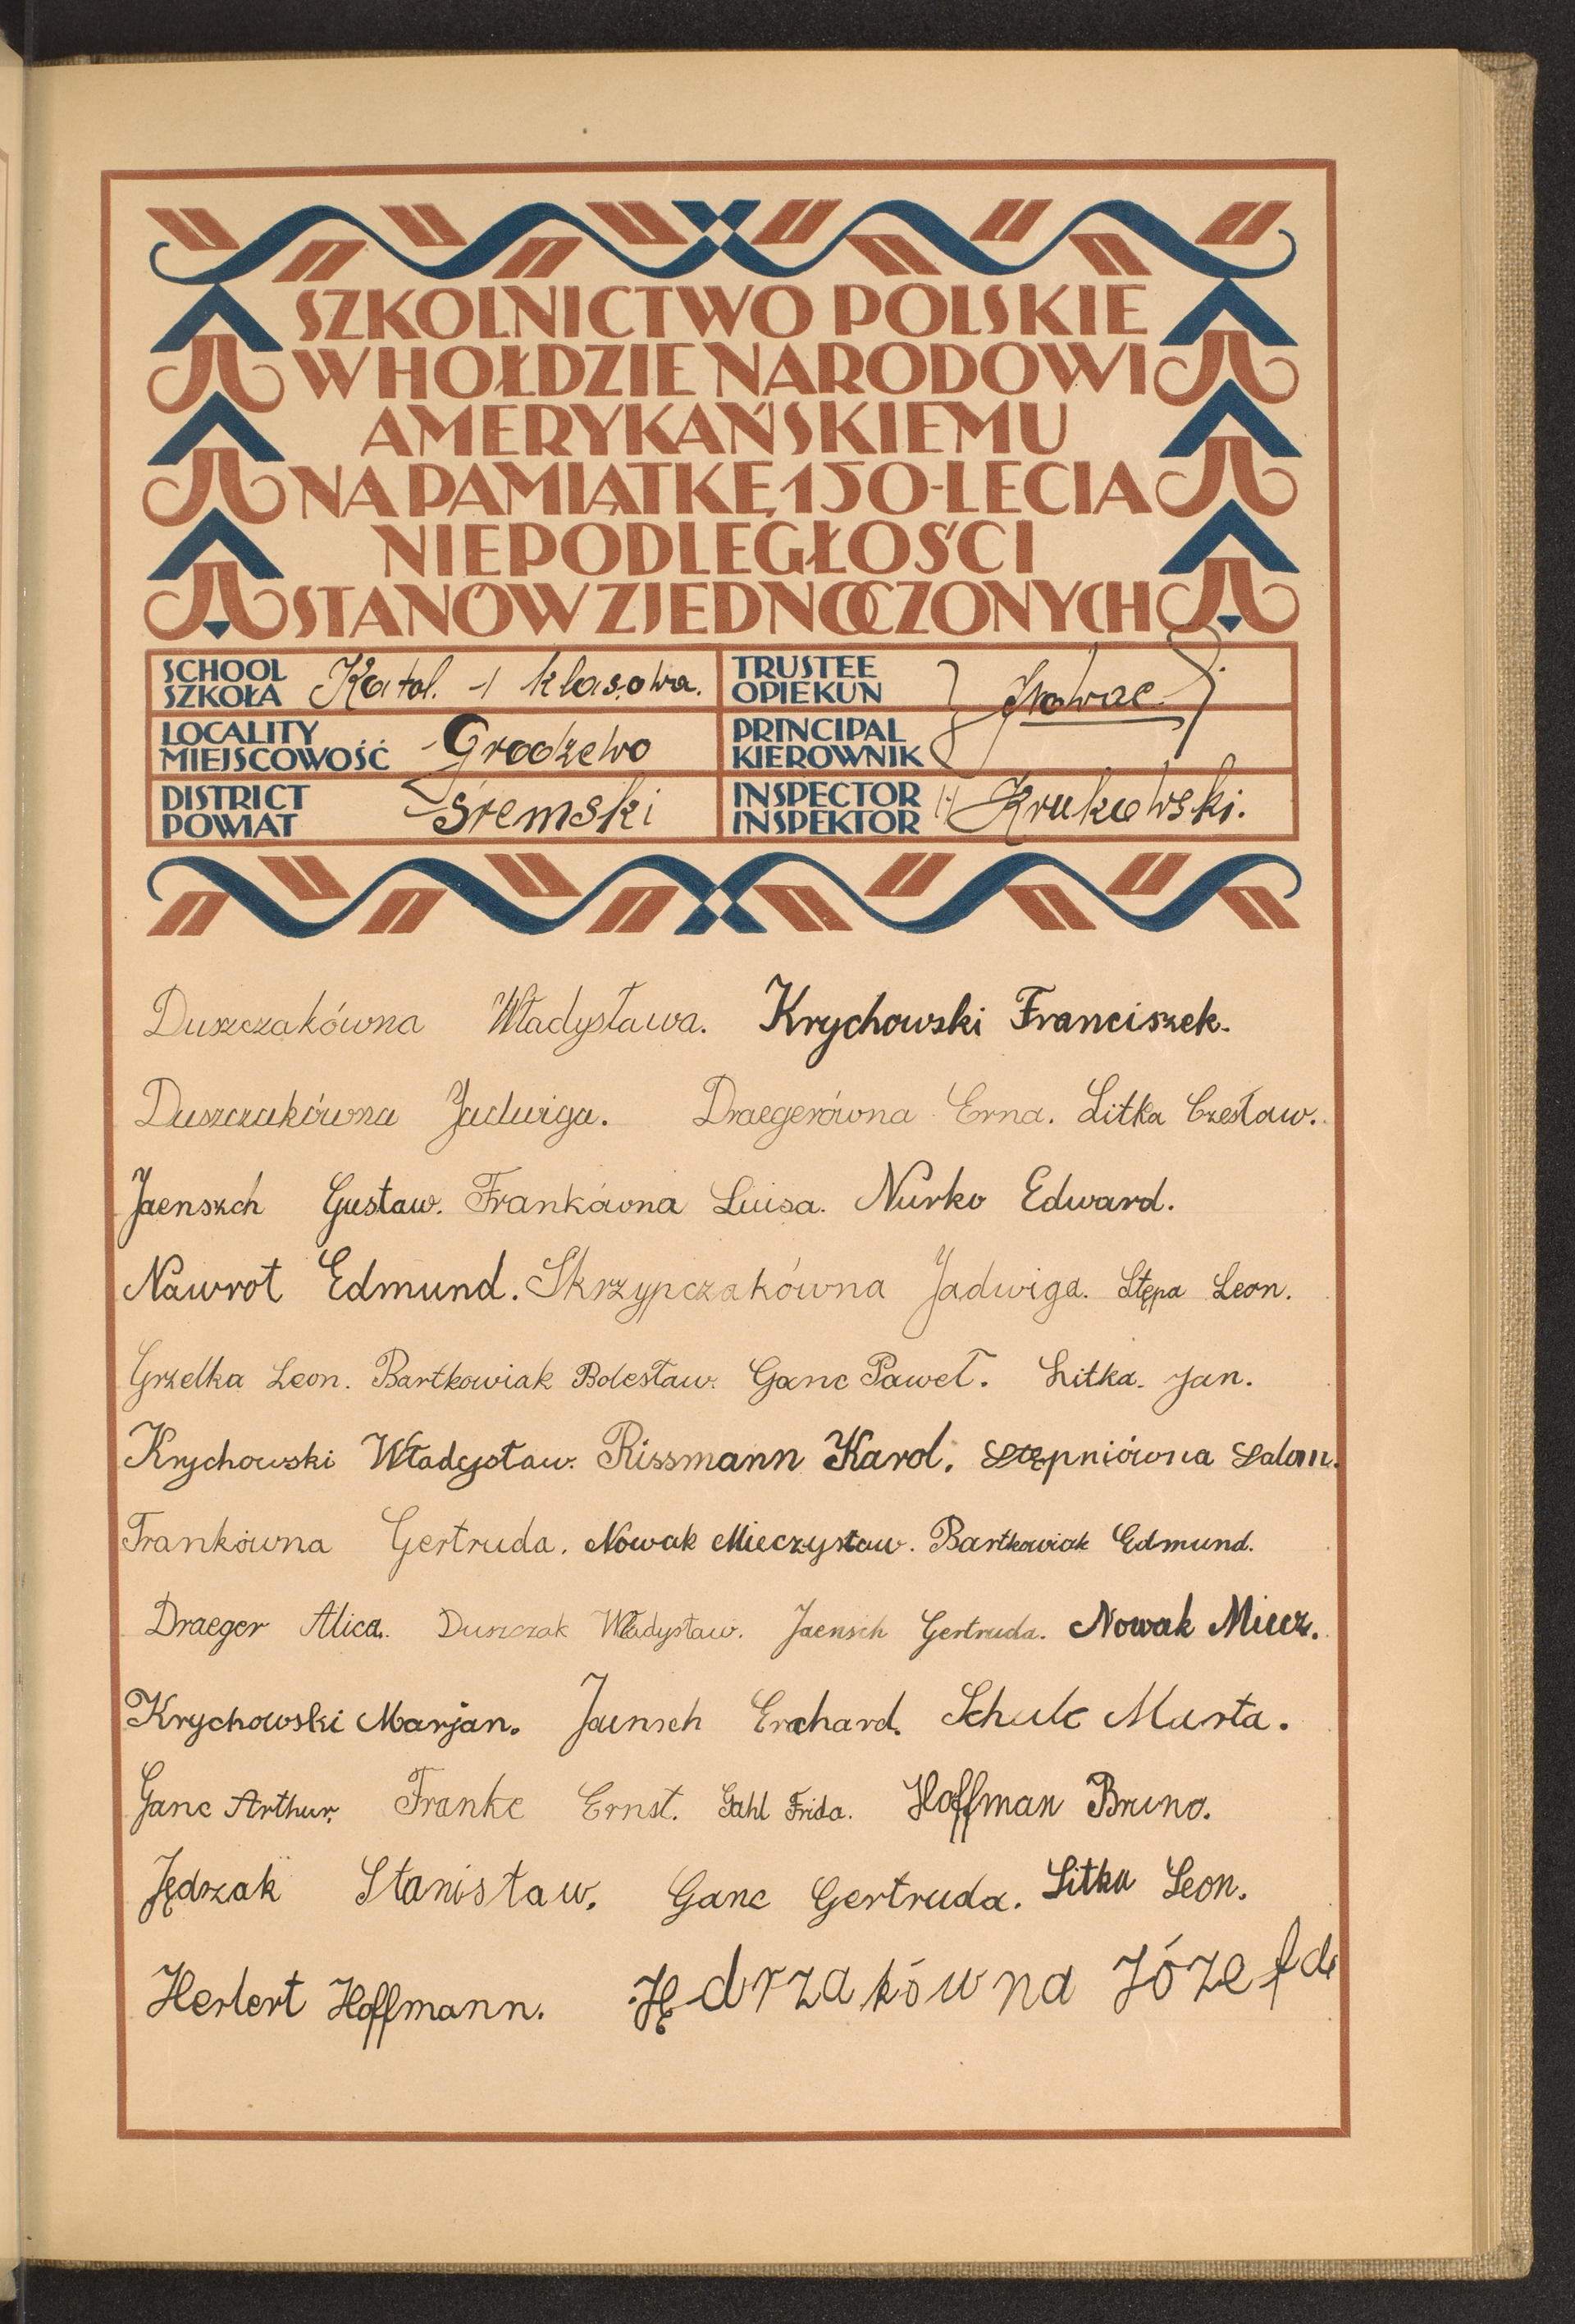 SZKOLNICTWO POLSKIE
W HOŁDZIE NARODOWI
AMERYKAŃSKIEMU
NA PAMIĄTKĘ 150-LECIA
NIEPODLEGŁOŚCI
STANÓW ZJEDNOCZONYCH
SCHOOL
SZKOŁA Katol. 1 klasowa.
TRUSTEE
OPIEKUN
LOCALITY
MIEJSCOWOŚĆ Grodzewo
PRINCIPAL
KIEROWNIK
DISTRICT
POWIAT Śremski
INSPECTOR
INSPEKTOR Krukowski.
Duszczakówna Władysława. Krychowski Franciszek.
Duszczakówna Jadwiga. Draegerówna Erna. Litka Czesław.
Jaenszch Gustaw. Frankówna Luisa. Nurko Edward.
Nawrot Edmund. Skrzypczakówna Jadwiga. Stępa Leon.
Grzelka Leon. Bartkowiak Bolesław. Ganc Paweł. Litka Jan.
Krychowski Władysław. Rissmann Karol. Stępniówna Salom.
Frankówna Gertruda. Nowak Mieczysław. Bartkowiak Edmund.
Draeger Alica. Duszczak Władysław. Jaensch Gertruda. Nowak Miecz.
Krychowski Marjan. Jaensch Erchard. Schulc Marta.
Ganc Arthur. Franke Ernst. Gahl Frida. Hoffman Bruno.
Jędrzak Stanisław. Ganc Gertruda. Litka Leon.
Herbert Hoffmann. Jędrzakówna Józefa